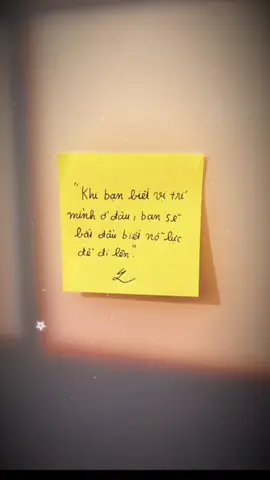 "Khi bạn biết vị trí
mình ở đâu, bạn sẽ
bắt đầu biết nỗ lực
để đi lên."